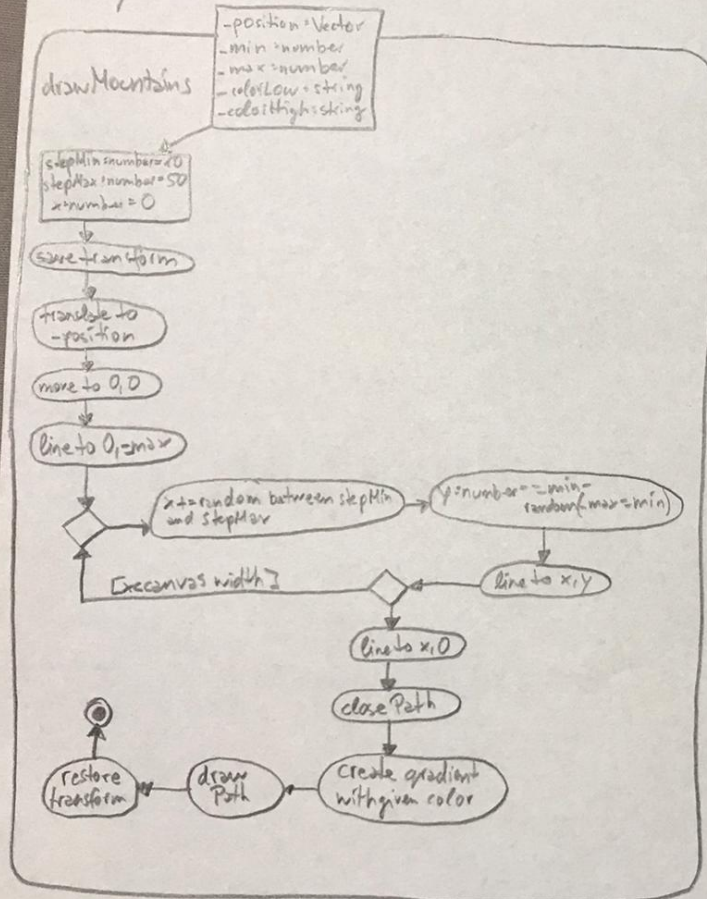 -position:Vector
-min:number
-max:number
-colorLow:string
-colorHigh:string
drawMountains
stepMin:number=10
stepMax:number=50
x:number=0
save transform
translate to
-position
move to 0,0
line to 0,-max
x+=random between stepMin
and stepMax
y:number=-min-
random(-max-min)
[x<canvas width]
line to x,y
line to x,0
close Path
restore
transform
draw
Path
create gradient
with given color